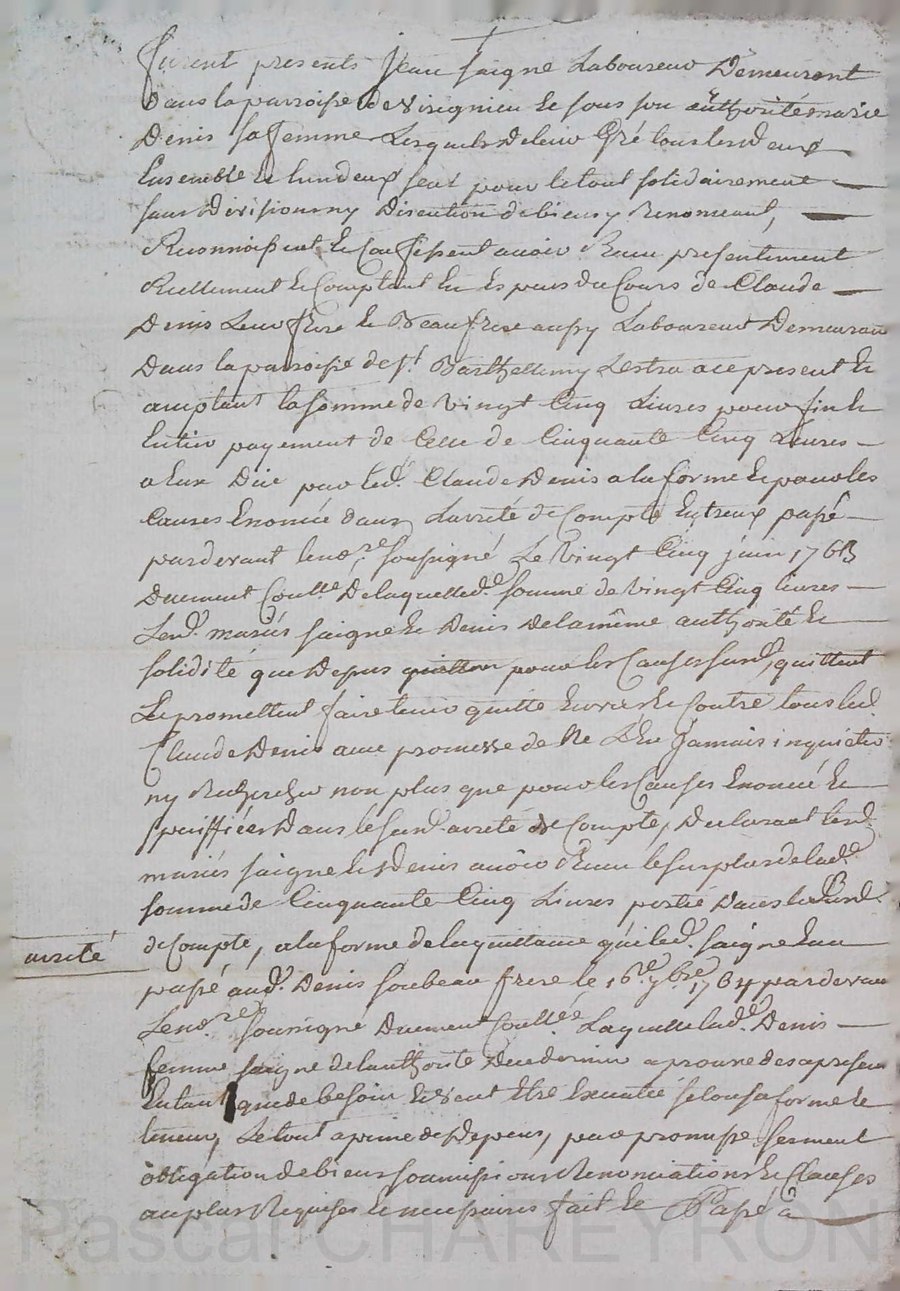 furent presents Jean faigne Laboureur Demeurant
Dans la parroisse de virignieu et sous son authorité marie
Denis sa femme Lesquels de leur Gré tous les deux
Ensemble et lun deux seul pour le tout solidairement
sans Division ny Discution de biens y Renonceant,
Reconnoissent et Confessent avoir Reçu presentement
Reellement et Comptant En Especes du Cours de Claude
Denis Leur frere et Beaufrere aussy Laboureur Demeurant
Dans la parroisse de st. Barthellemy Lestra a ce present et
acceptant la somme de vingt Cinq Livres pour fin et
Entier payement de Celle de Cinquante Cinq Livres
a Eux Düe par led. Claude Denis a la forme et pour les
Causes Enoncée dans Larreté de Compte Entreux passé
pardevant le nore. soussigné Le vingt Cinq juin 1763
Duement Coullé De laquelle de. somme de vingt Cinq livres
Lesd. mariés faigne et Denis De la même authorité et
solidité que Depuis pour les Causes susd. quittent
Et promettent faire tenir quitte Envers et Contre tous led.
Claude Denis avec promesse de Ne L'En Jamais inquieter
ny Rechercher non plus que pour les Causes Enoncée et
speciffiées Dans le susd. arreté de Compte, Declarant lesd.
mariés faigne et Denis avoir Reçu le surplus de lade.
somme de Cinquante Cinq Livres portée Dans le susd.
arreté
de Compte, a la forme de la quittance qui led. faigne En a
passé aud. Denis son beau frere le 16e. 7bre. 1764 pardevant
Le nore. soussigné Duement Coullée Laquelle lade. Denis
femme faigne de lauthorité Dece dernier approuve des a present
En tant que de besoin Et veut Etre Executée selon sa forme et
teneur, Le tout a peine de Depens, par promesse serment
obligation de biens soumissions Renonciations Et Clauses
au plus Requises et necessaires fait et Passé a
Pascal CHAREYRON